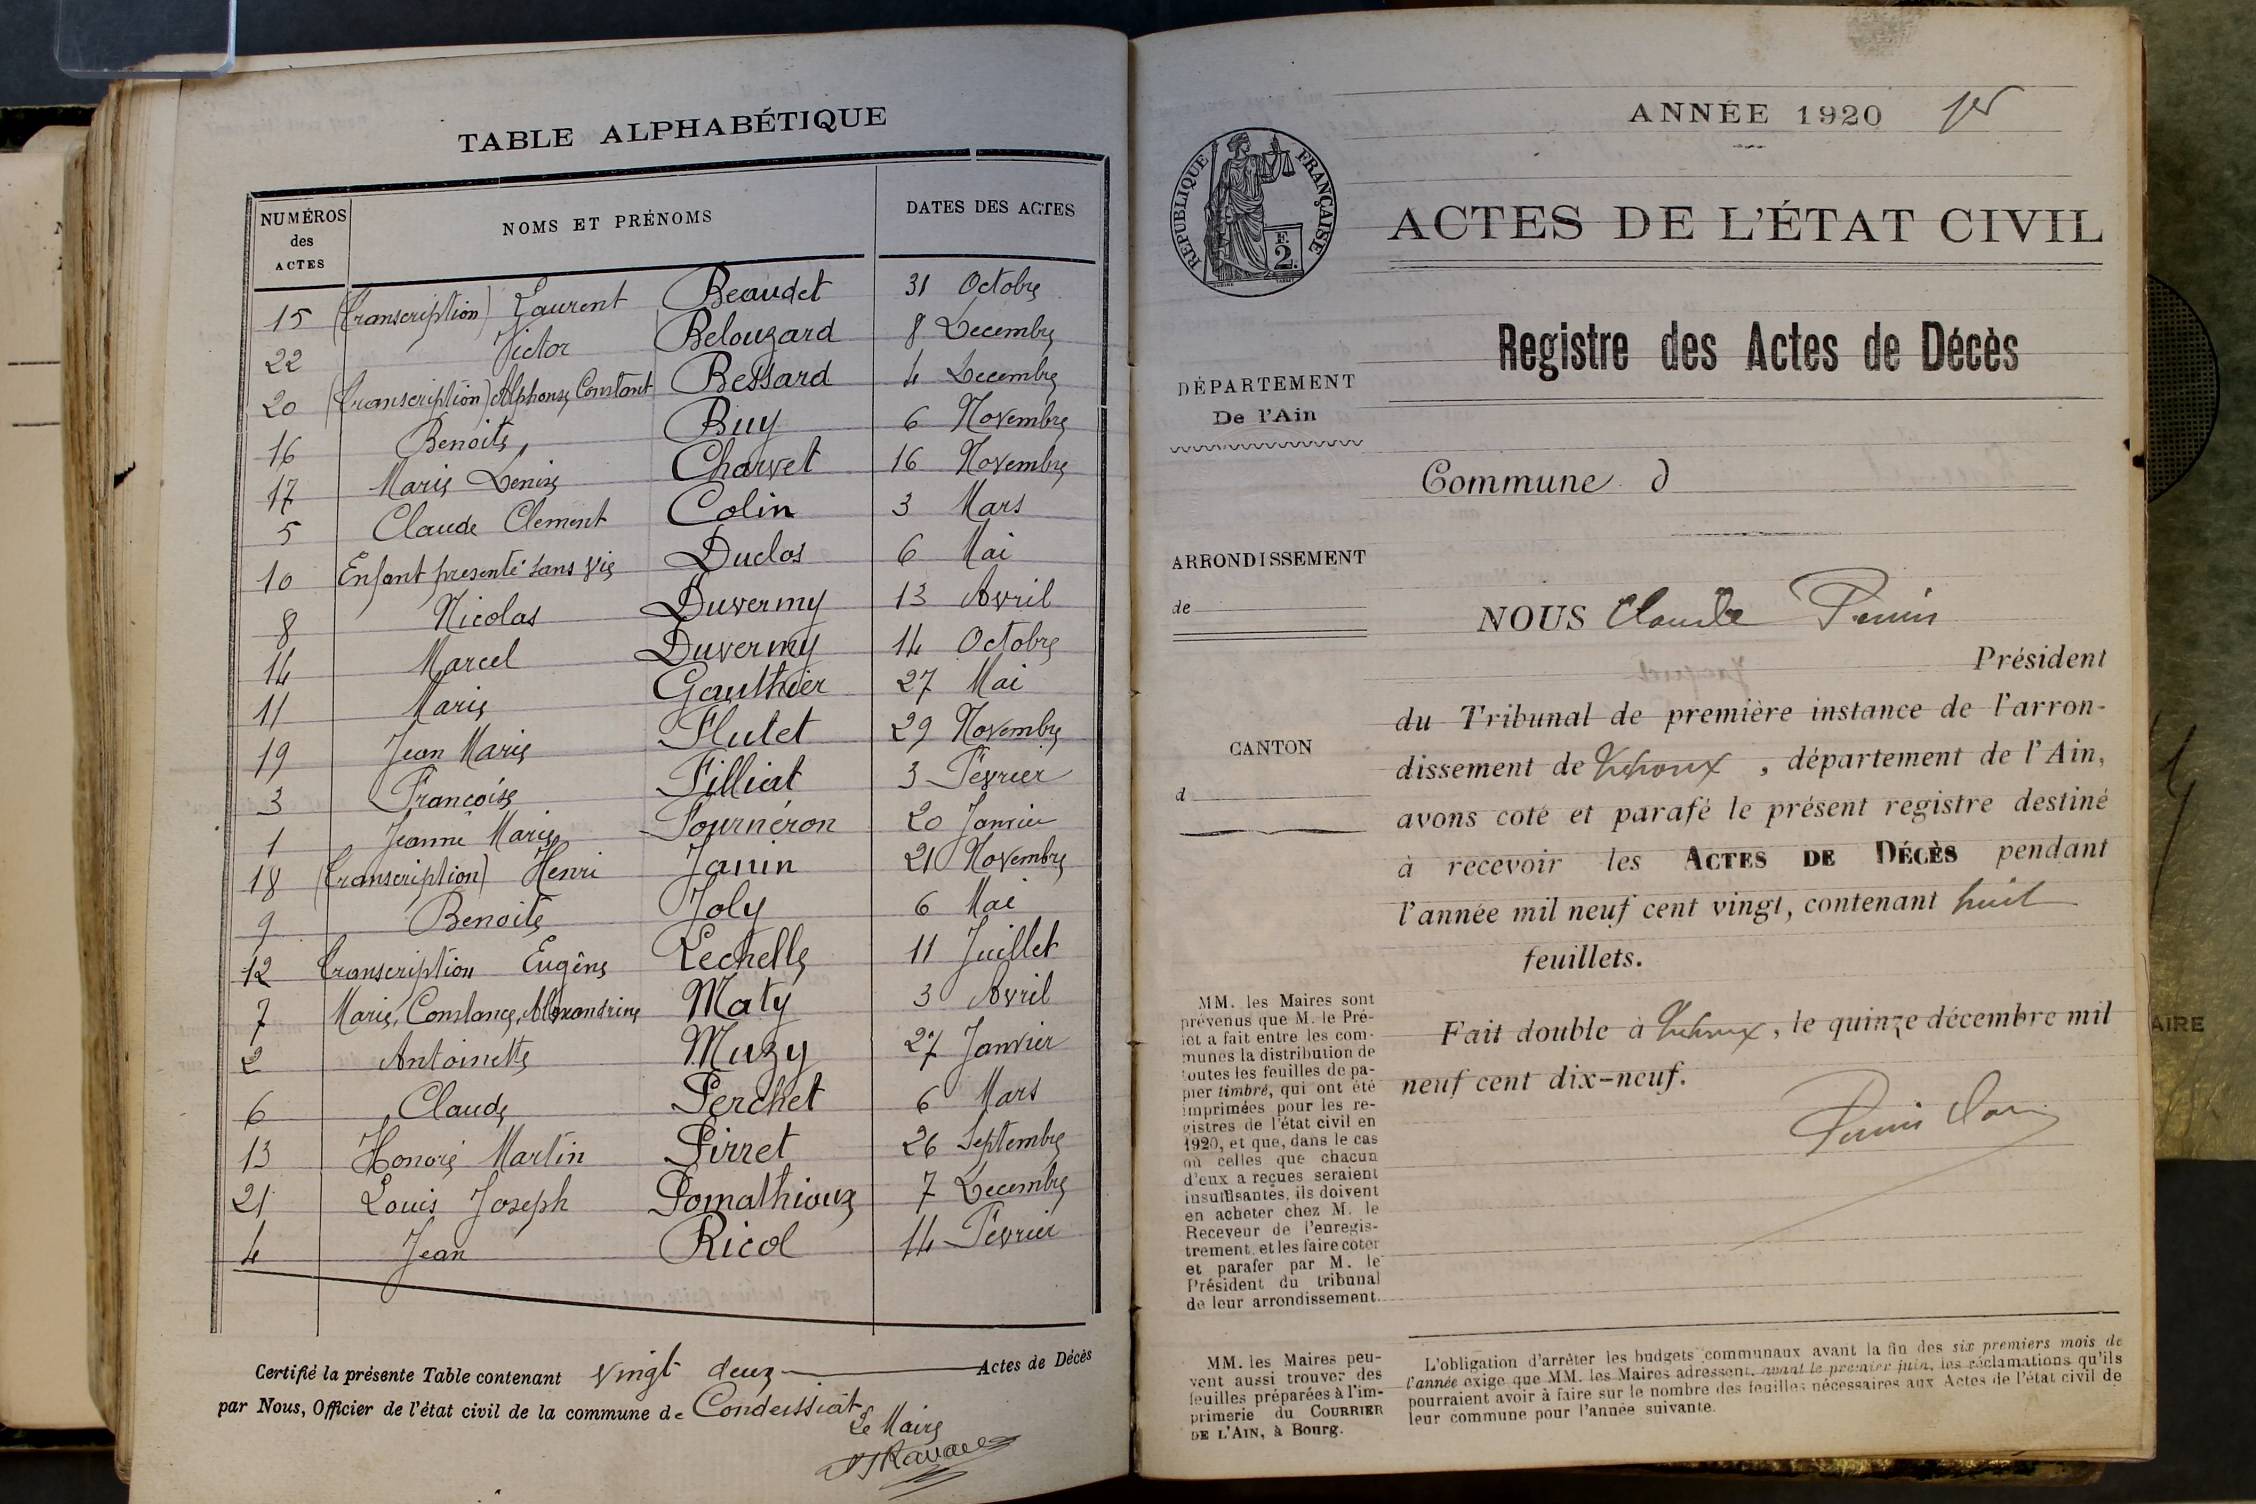 TABLE ALPHABÉTIQUE
NUMÉROS des ACTES NOMS ET PRÉNOMS DATES DES ACTES
15 (Transcription) Laurent Beaudet 31 Octobre
22 Victor Belouzard 8 Decembre
20 (Transcription) Alphonse Constant Bessard 4 Decembre
16 Benoite Buy 6 Novembre
17 Marie Denise Charvet 16 Novembre
5 Claude Clement Colin 3 Mars
10 Enfant presenté sans vie Duclos 6 Mai
8 Nicolas Duvermy 13 Avril
14 Marcel Duvermy 14 Octobre
11 Marie Gauthier 27 Mai
19 Jean Marie Flutet 29 Novembre
3 Françoise Filliat 3 Fevrier
1 Jeanne Marie Fourneron 20 Janvier
18 (Transcription) Henri Janin 21 Novembre
9 Benoite Joly 6 Mai
12 Transcription Eugène Lechelle 11 Juillet
7 Marie, Constance, Alexandrine Maty 3 Avril
2 Antoinette Muzy 27 Janvier
6 Claude Perchet 6 Mars
13 Honoré Martin Pirret 26 Septembre
21 Louis Joseph Pomathioux 7 Decembre
4 Jean Ricol 14 Fevrier
Certifié la présente Table contenant vingt deux Actes de Décès
par Nous, Officier de l'état civil de la commune de Condeissiat
Le Maire
ANNÉE 1920 1er
RÉPUBLIQUE FRANÇAISE
F.
2.
ACTES DE L'ÉTAT CIVIL
Registre des Actes de Décès
DÉPARTEMENT
De l'Ain
Commune d
ARRONDISSEMENT
de
NOUS Claude Perrin
Président
du Tribunal de première instance de l'arron-
dissement de Trévoux, département de l'Ain,
CANTON
d
avons coté et parafé le présent registre destiné
à recevoir les ACTES DE DÉCÈS pendant
l'année mil neuf cent vingt, contenant huit
feuillets.
Fait double à Trévoux, le quinze décembre mil
neuf cent dix-neuf.
MM. les Maires sont
prévenus que M. le Pré-
fet a fait entre les com-
munes la distribution de
toutes les feuilles de pa-
pier timbré, qui ont été
imprimées pour les re-
gistres de l'état civil en
1920, et que, dans le cas
où celles que chacun
d'eux a reçues seraient
insuffisantes, ils doivent
en acheter chez M. le
Receveur de l'enregis-
trement, et les faire coter
et parafer par M. le
Président du tribunal
de leur arrondissement.
MM. les Maires peu-
vent aussi trouver des
feuilles préparées à l'im-
primerie du COURRIER
DE L'AIN, à Bourg.
L'obligation d'arrêter les budgets communaux avant la fin des six premiers mois de
l'année exige que MM. les Maires adressent, avant le premier juin, les réclamations qu'ils
pourraient avoir à faire sur le nombre des feuilles nécessaires aux Actes de l'état civil de
leur commune pour l'année suivante.
AIRE